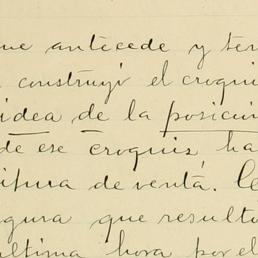 ue antecede y ter
construyó el croqui
idea de la posición
de ese croquis ha
itura de venta. Ce
gura que resultó
ultima hora por el